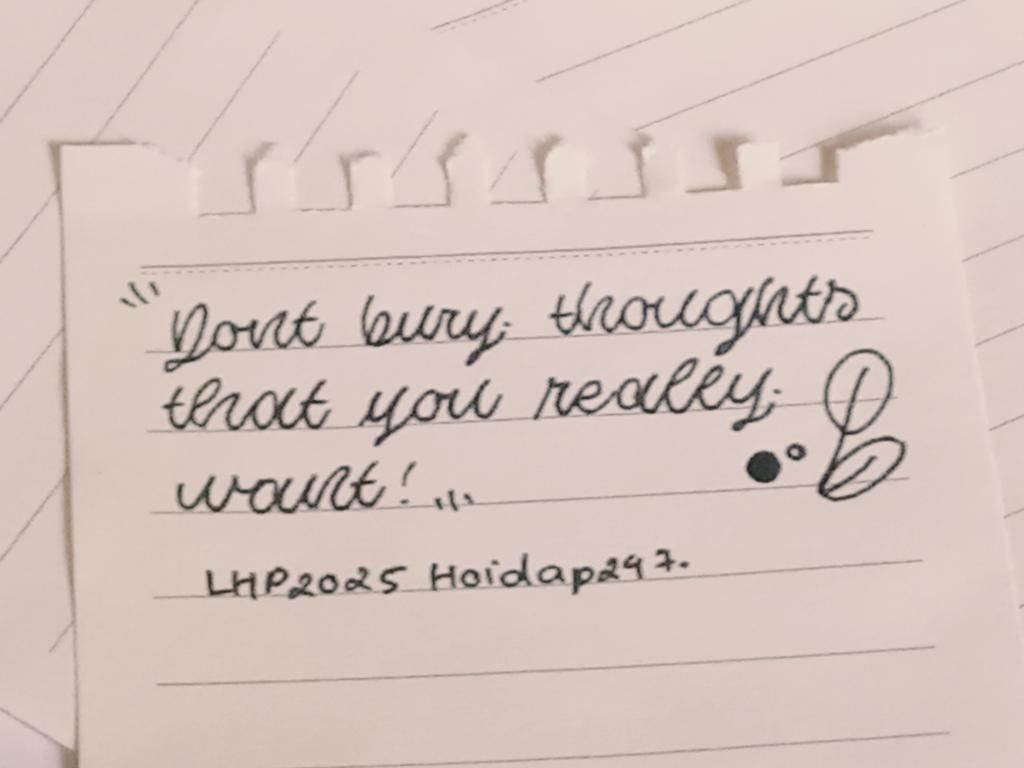 "Dont bury thoughts
that you really
want!"
LHP2025 Hoidap247.